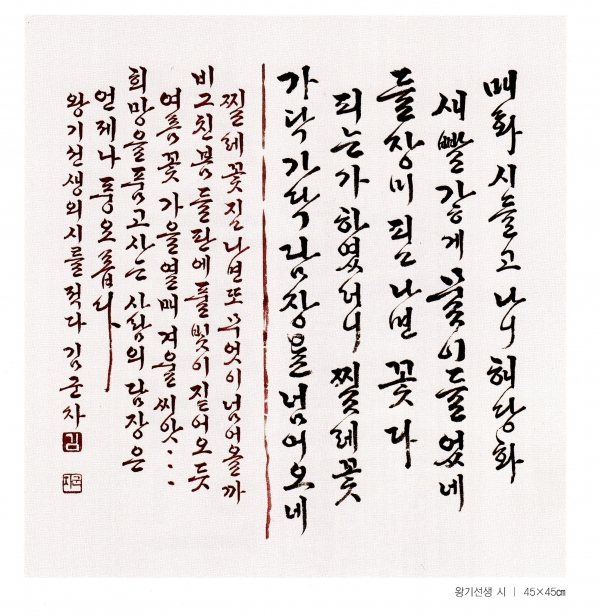 매화 시들고 나니 해당화
새빨갛게 물이들었네
들장미 피고 나면 꽃 다
피는가 하였더니 찔레꽃
가닥가닥 담장을 넘어오네
찔레꽃 지고 나면 또 무엇이 넘어올까
비그친 봄 들판에 풀빛이 짙어오듯
여름꽃 가을열매 겨울 씨앗...
희망을 품고사는 사람의 담장은
언제나 풍요롭다
왕기선생의시를 적다 김군자
김
군자
왕기선생 시 | 45×45㎝